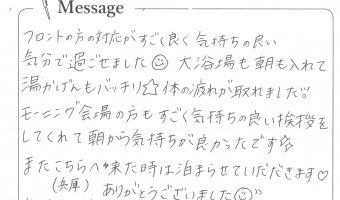 Message
フロントの方の対応がすごく良く気持ちの良い
気分で過ごせました☺ 大浴場も朝も入れて
湯かげんもバッチリ☆体の疲れが取れました!!
モーニング会場の方もすごく気持ちの良い挨拶を
してくれて朝から気持ちが良かったです☆
またこちらへ来た時は泊まらせていただだきます♡
(兵庫) ありがとうございました☺"